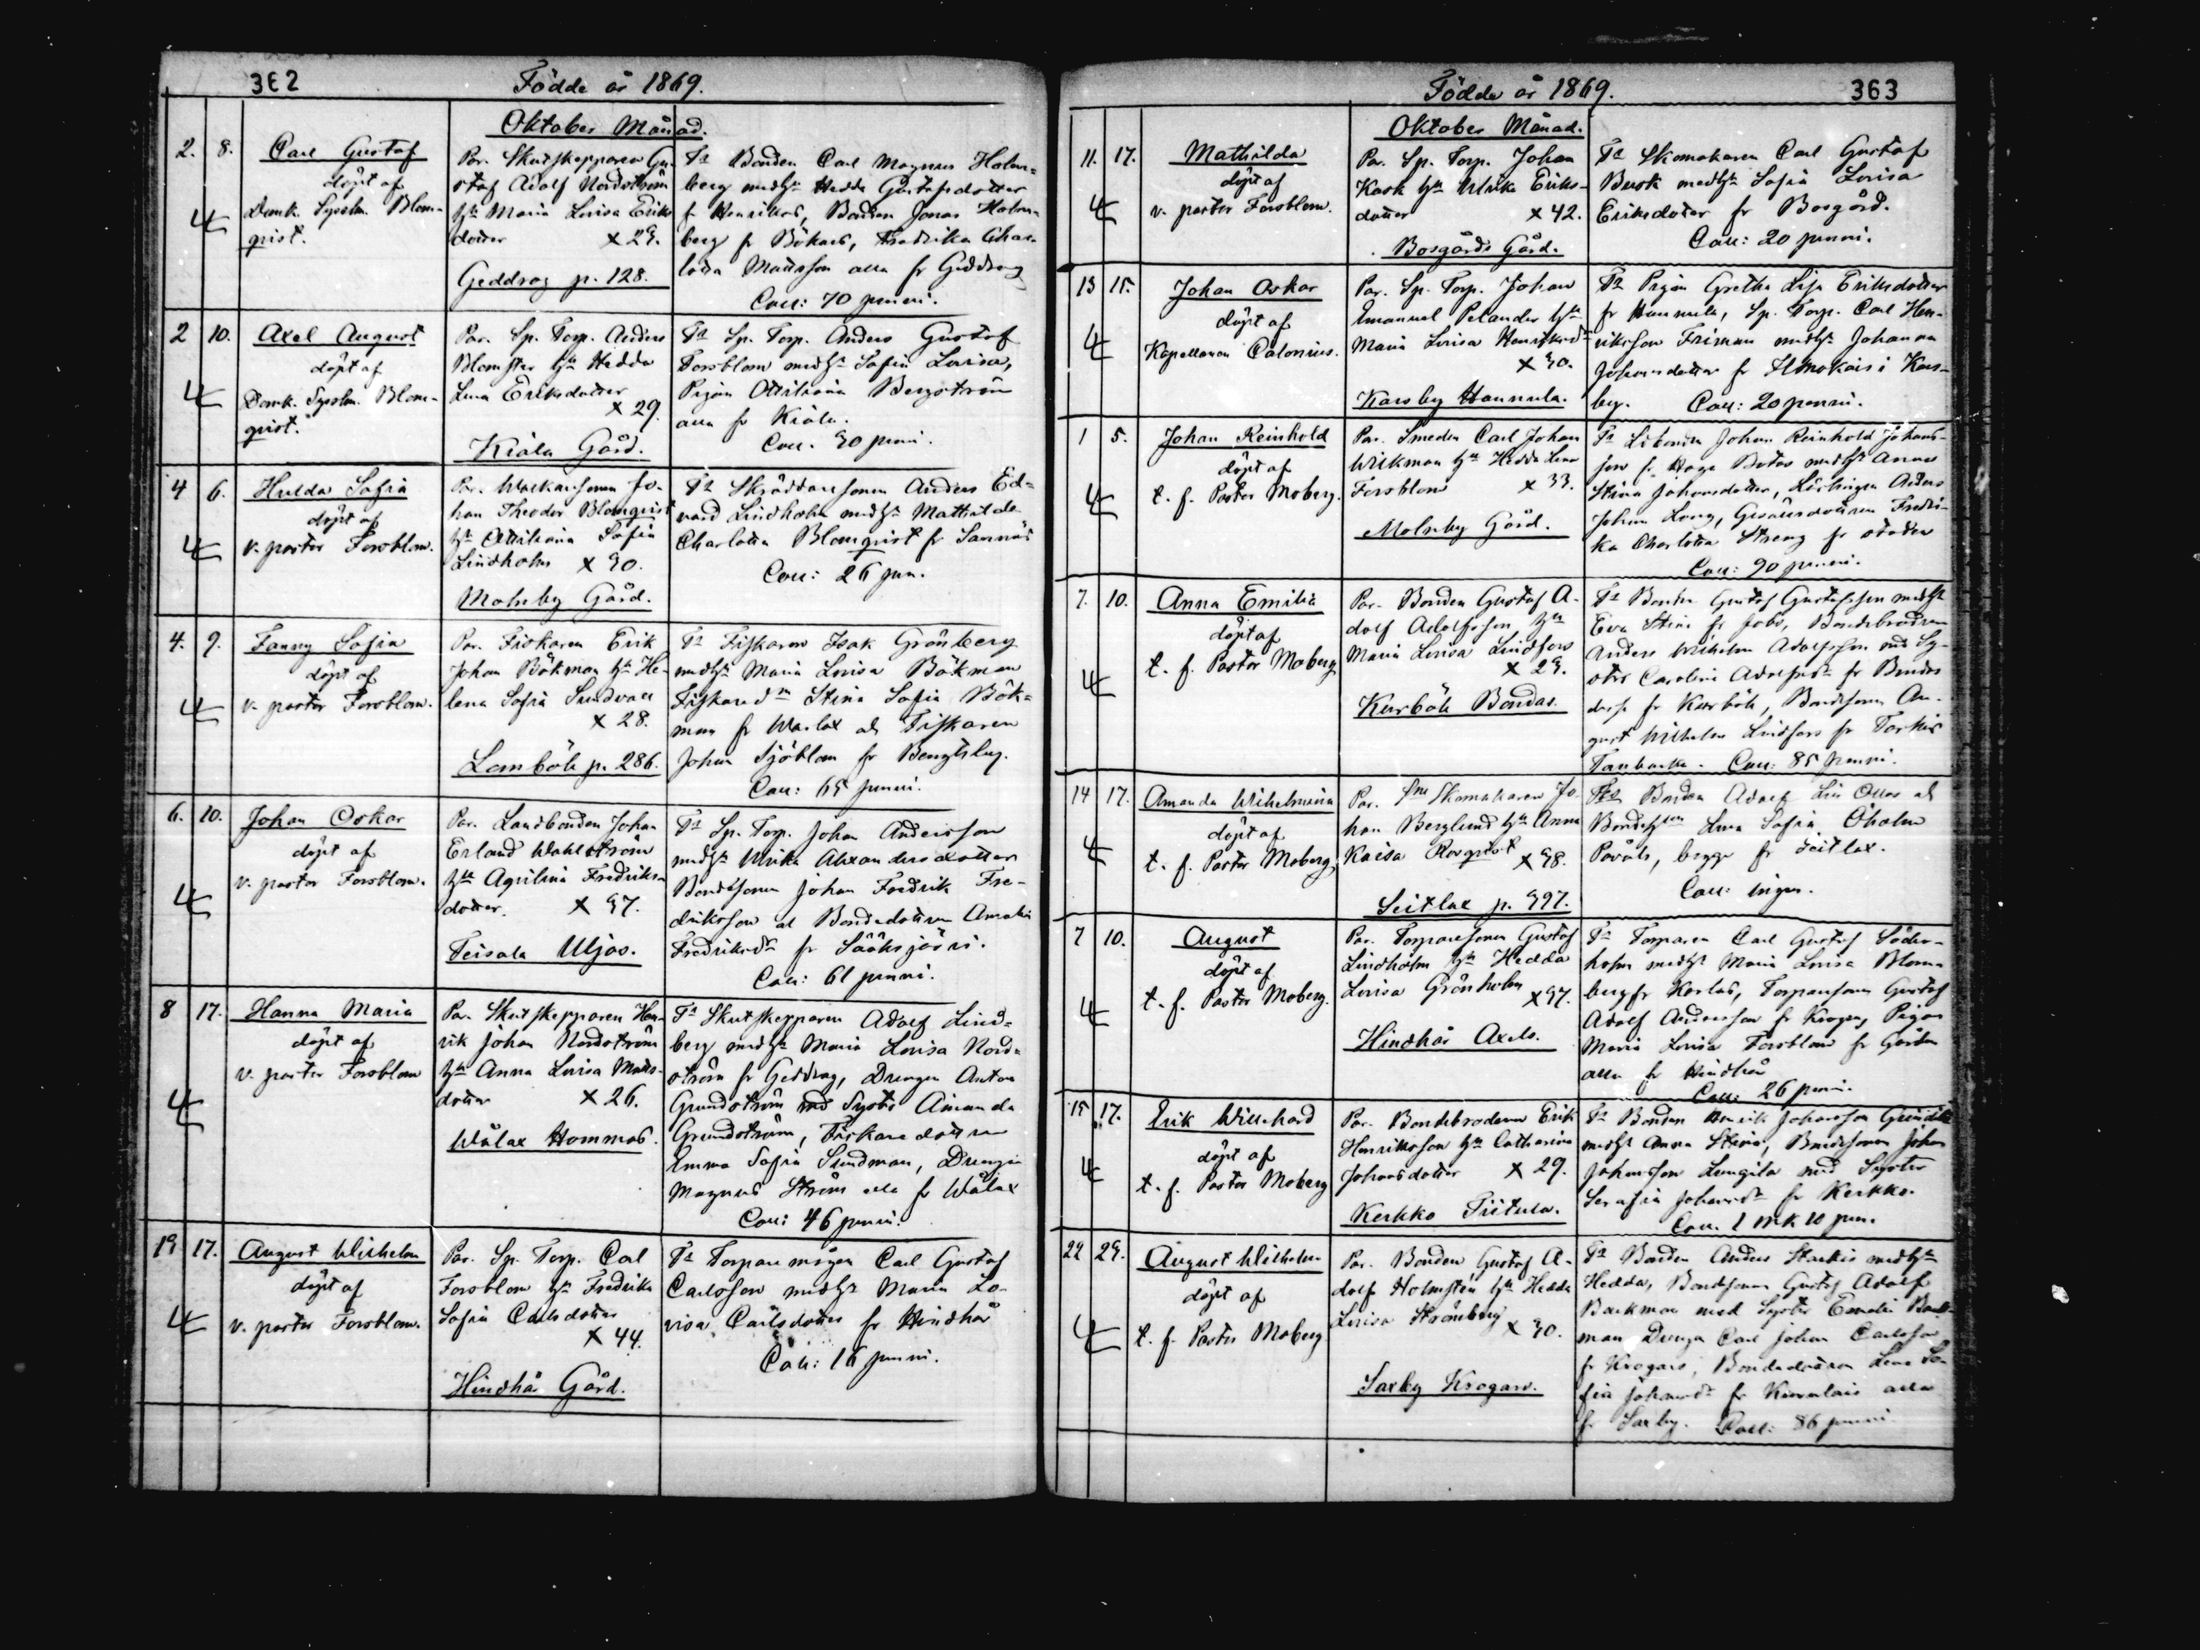 362
Födde år 1869.
Oktober Månad.
2. 8. Carl Gustaf
döpt af
Domk. Syssln. Blom-
qvist.
Par. Skutskepparen Gu-
staf Adolf Nordström
hu Maria Lovisa Eriks
dotter x 29.
Geddrag p. 128.
Fr Bonden Carl Magnus Holm-
berg med hu Hedda Gustafsdotter
fr Henrikas, Bonden Jonas Holm-
berg fr Bökars, Fredrika Char-
lotta Mattsson alla fr Geddrag
Coll: 70 penni.
2 10. Axel August
döpt af
Domk. Syssln. Blom-
qvist.
Par. Sp. Torp. Anders
Blomster hu Hedda
Lena Eriksdotter
x 29.
Kiala Gård.
Fr Sp. Torp. Anders Gustaf
Forsblom med hu Sofia Lovisa,
Pigan Ottiliana Bergström
alla fr Kiala.
Coll. 30 penni.
4 6. Hulda Sofia
döpt af
v. pastor Forsblom.
Par. Jo-
han Theodor Blomqvist
hu Ottiliana Sofia
Lindholm x 30.
Molnby Gård.
Fr Skräddaresonen Anders Ed-
vard Lindholm med hu Mathilda
Charlotta Blomqvist fr Sannäs
Coll: 26 pen.
4. 9. Fanny Sofia
döpt af
v. pastor Forsblom.
Par. Fiskaren Erik
Johan Bökman hu He-
lena Sofia Sundvall
x 28.
Lomböle p. 286.
Fr Fiskaren Isak Grönberg
med hu Maria Lovisa Bökman
Stina Sofia Bök-
man fr Warlax och Fiskaren
Johan Sjöblom fr Bengtsby.
Coll: 65 penni.
6. 10. Johan Oskar
döpt af
v. pastor Forsblom.
Par. Landbonden Johan
Erland Wahlström
hu Agvilina Fredriks-
dotter. x 37.
Teisala Uljas.
Fr Sp. Torp. Johan Andersson
med hu Ulrika Alexandersdotter
Bondesonen Johan Fredrik Fre-
driksson och Bondedottren Amalia
Fredriksdr fr Sääksjärvi.
Coll: 61 penni.
8 17. Hanna Maria
döpt af
v. pastor Forsblom
Par. Skutskepparen Hen-
rik Johan Nordström
hu Anna Lovisa Matts-
dotter x 26.
Wålax Hommas.
Fr Skutskepparen Adolf Lind-
berg med hu Maria Lovisa Nord-
ström fr Geddrag, Drengen Anton
Grundström med Syster Amanda
Grundström, Fiskaredottren
Emma Sofia Sundman, Drengen
Magnus Ström alla fr Wålax
Coll: 46 penni.
19 17. August Wilhelm
döpt af
v. pastor Forsblom.
Par. Sp. Torp. Carl
Forsblom hu Fredrika
Sofia Carlsdotter
x 44.
Hindhår Gård.
Fr Torparemågen Carl Gustaf
Carlsson med hu Maria Lo-
visa Carlsdotter fr Hindhår
Coll: 16 penni.
Födde år 1869.
363
Oktober Månad.
11. 17. Mathilda
döpt af
v. pastor Forsblom.
Par. Sp. Torp. Johan
Kask hu Ulrika Eriks-
dotter x 42.
Bosgårds Gård.
Fr Skomakaren Carl Gustaf
Busk med hu Sofia Lovisa
Eriksdotter fr Bosgård.
Coll: 20 penni.
13 15. Johan Oskar
döpt af
Kapellanen Calonius.
Par. Sp. Torp. Johan
Emanuel Pelander hu
Maria Lovisa Henriksdr
x 30.
Karsby Hannula.
Fr Pigan Gretha Lisa Eriksdotter
fr Hannula, Sp. Torp. Carl Hen-
riksson Friman med hu Johanna
Johansdotter fr i Kars-
by. Coll: 20 penni.
1 5. Johan Reinhold
döpt af
t. f. Pastor Moberg.
Par. Smeden Carl Johan
Wikman hu Hedda Lena
Forsblom x 33.
Molnby Gård.
Fr Johan Reinhold Johans-
son fr Botas med hu Anna
Stina Johansdotter, Lärlingen Anders
Johan Long, Fredri-
ka Charlotta Streng fr staden
Coll: 90 penni.
7. 10. Anna Emilia
döpt af
t. f. Pastor Moberg
Par. Bonden Gustaf A-
dolf Adolfsson, hu
Maria Lovisa Lindfors
x 29.
Kurböle Bondas.
Fr Bonden Gustaf Gustafsson med hu
Eva Stina fr Jobs, Bondebrodren
Anders Wilhelm Adolfsson med Sy-
ster Carolina Adolfsdr fr Bondas
fr Kurböle, Bondesonen Au-
gust Wilhelm Lindfors fr
Coll: 85 penni.
14 17. Amanda Wilhelmina
döpt af
t. f. Pastor Moberg.
Par. Skomakaren Jo-
han Berglund hu Anna
Kaisa x 38.
Seitlax p. 397.
Fr Bonden Adolf Lill Ollas och
Lena Sofia Öholm
, begge fr Seitlax.
Coll: ingen.
7 10. August
döpt af
t. f. Pastor Moberg.
Par. Torparesonen Gustaf
Lindholm hu Hedda
Lovisa Grönholm x 37.
Hindhår Axels.
Fr Torparen Carl Gustaf Söder-
holm med hu Maria Lovisa Blom-
berg fr , Torparesonen Gustaf
Adolf Andersson fr , Pigan
Maria Lovisa Forsblom fr Gården
alla fr Hindhår
Coll: 26 penni.
15 17. Erik Willehard
döpt af
t. f. Pastor Moberg
Par. Bondebrodren Erik
Henriksson hu Catharina
Johansdotter x 29.
Kerkko Tiitula.
Fr Bonden Henrik Johansson
med hu Anna Stina, Bondesonen Johan
Johansson med Syster
Serafia Johansdr fr Kerkko.
Coll. 1 mk 10 pen.
22 29. August Wilhelm
döpt af
t. f. Pastor Moberg
Par. Bonden Gustaf A-
dolf Holmsten hu Hedda
Lovisa Strömberg x 30.
Saxby Krogars.
Fr Bonden Anders med hu
Hedda, Bondesonen Gustaf Adolf
Backman med Syster Emelie Back-
man Drengen Carl Johan Carlsson
fr Krogars, Bondedottren Lena So-
fia Johansdr fr alla
fr Saxby. Coll: 86 penni